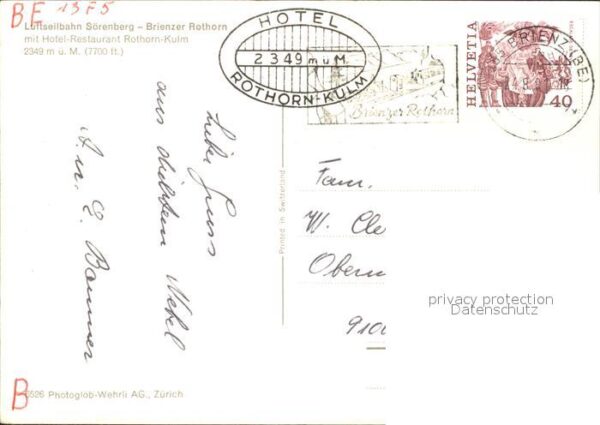 BE 13F5
Luftseilbahn Sörenberg – Brienzer Rothorn
mit Hotel-Restaurant Rothorn-Kulm
2349 m ü. M. (7700 ft.)
HOTEL
2349 m ü M.
ROTHORN-KULM
Brienzer Rothorn
HELVETIA
40
BRIENZ (BE)
Liebe Gruss
aus dichtem Nebel
A. u. E. Banner
Printed in Switzerland
Fam.
W. Cle
Oberm
910
privacy protection
Datenschutz
B
0526 Photoglob-Wehrli AG., Zürich